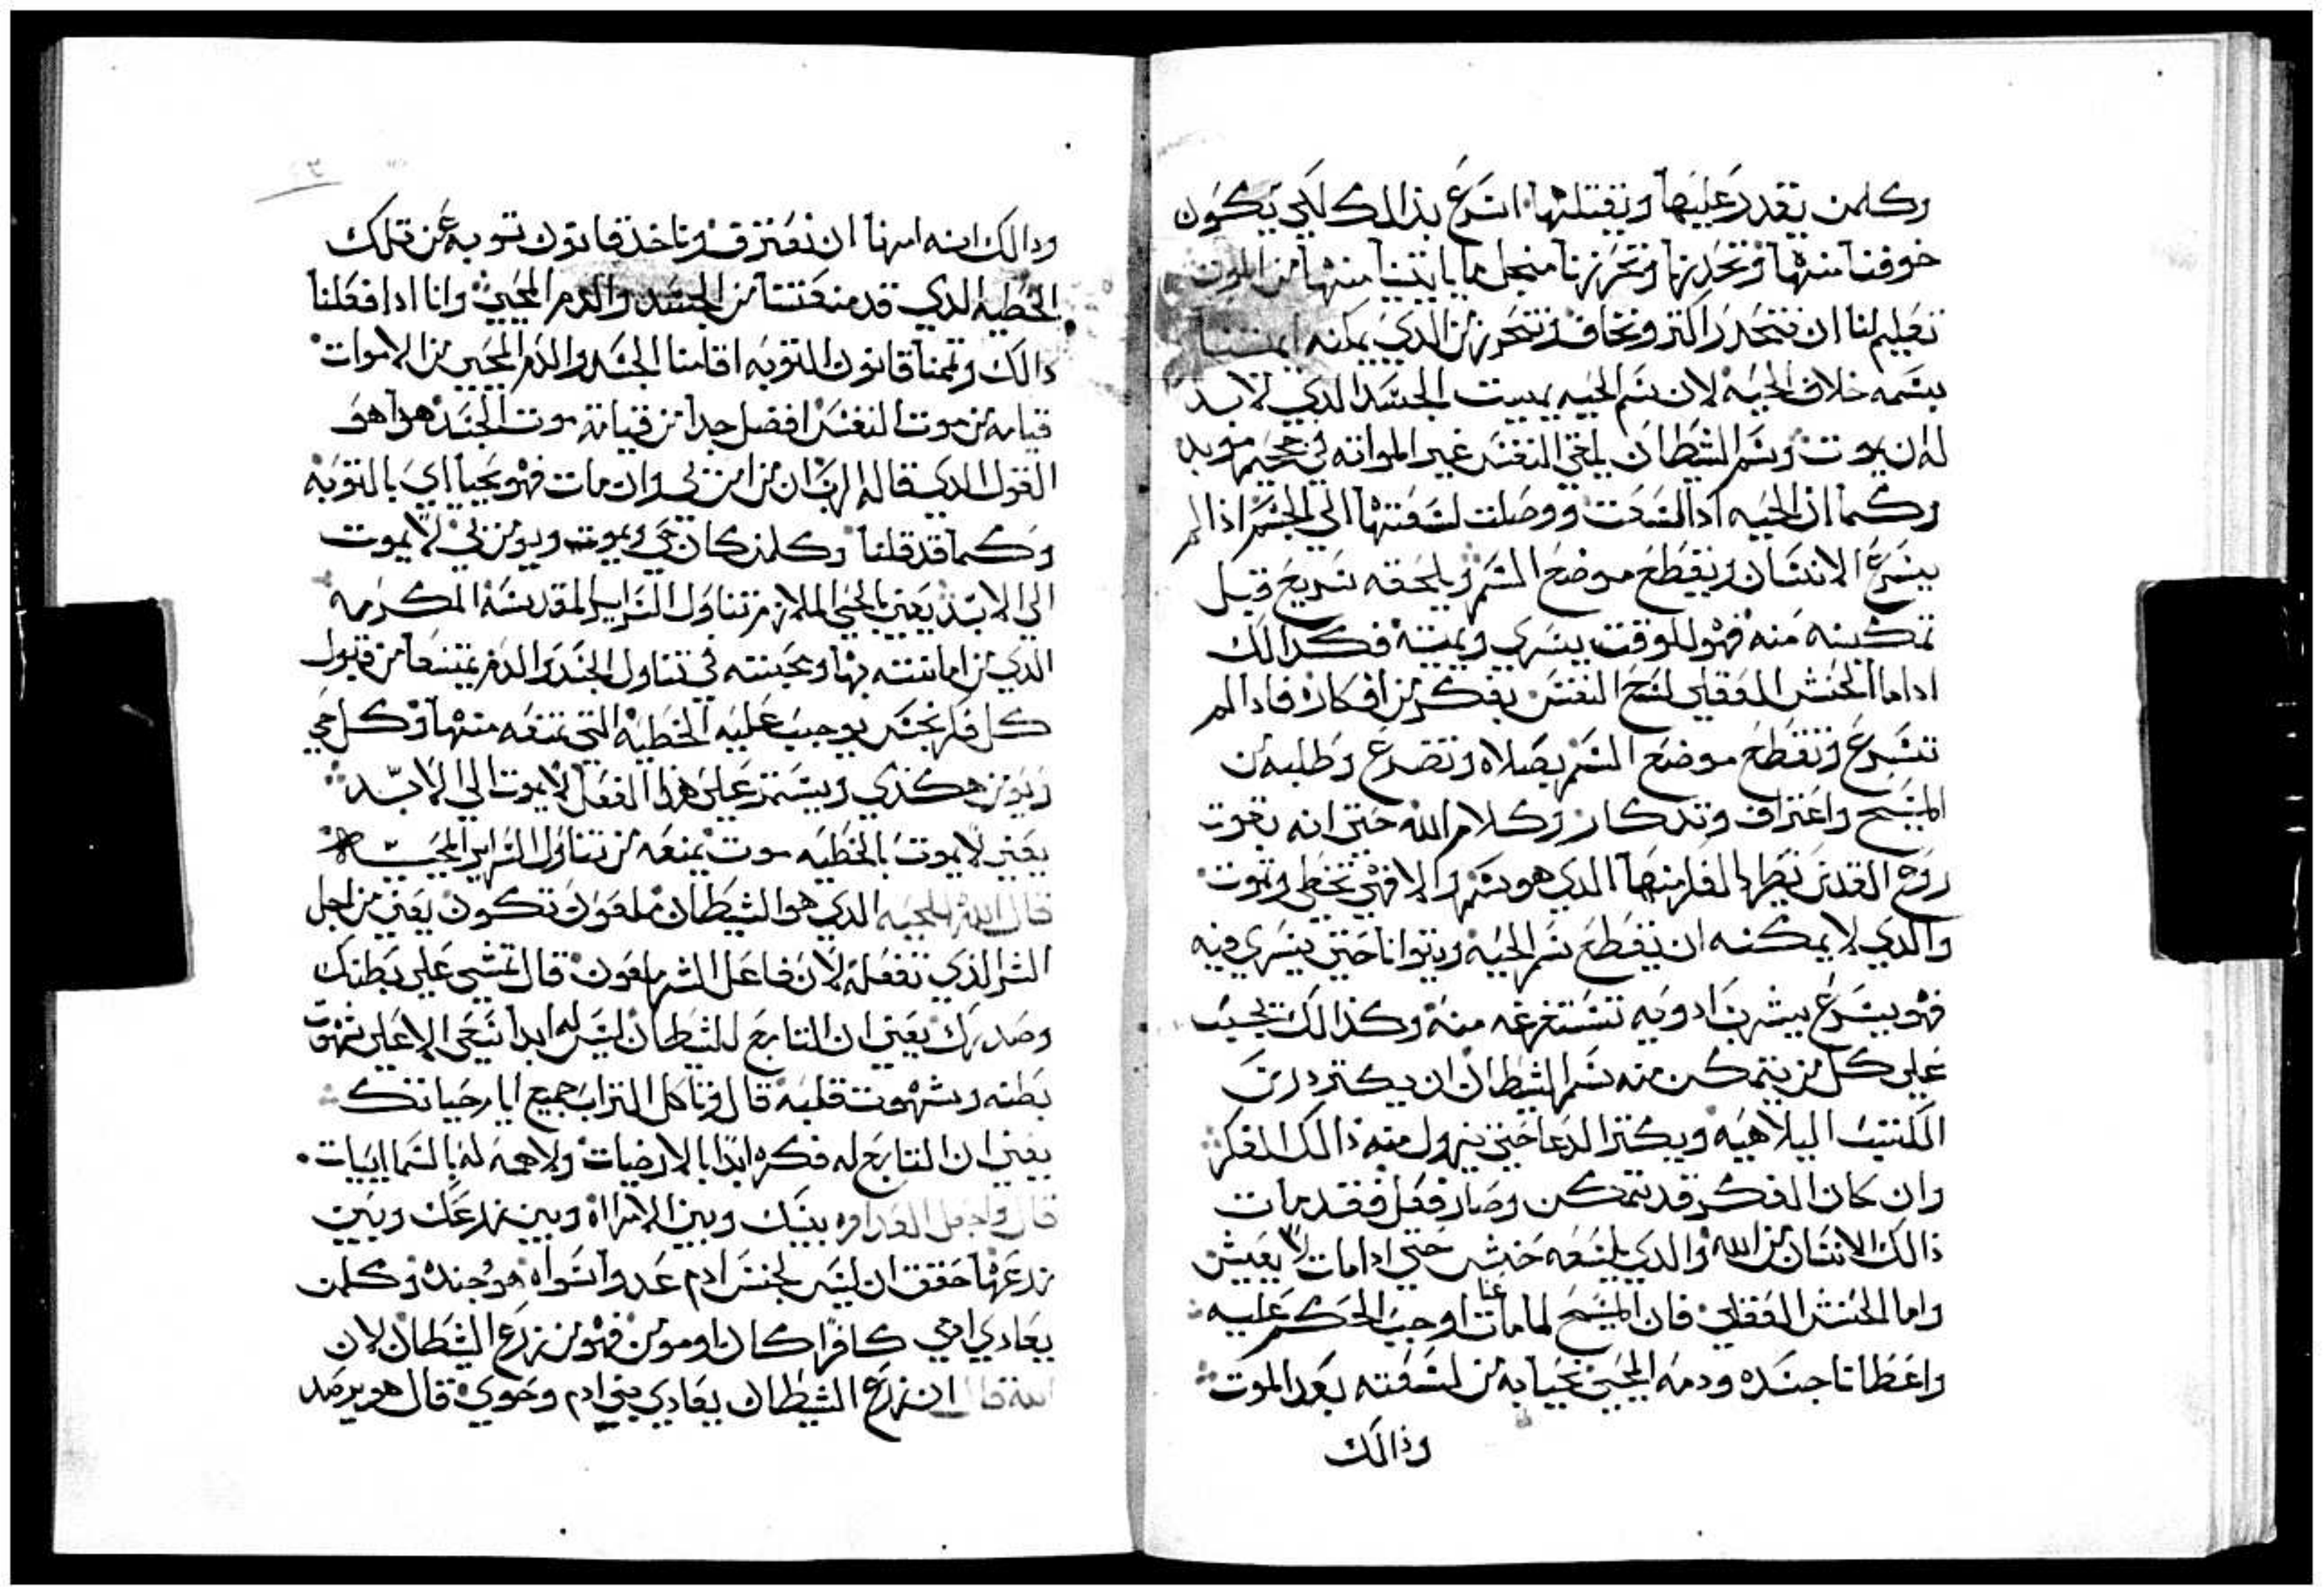 وكلمن يقدر عليها ويقتلها اسرع بذالك لكي يكون
خوفنا منها وتحدرنا وتحرزنا منجل ما ياتينا منها من الموت
تعليم لنا ان نتحدر اكتر ونخاف ونتحرز من الذي يمكنه ايميتنا
بسمه خلاف الحيه لان سم الحيه يميت الجسد الدي لابد
له ان يموت وسم الشيطان يلقي النفس غير المواته في جحيم موبد
وكما ان الحيه ادا لسعت ووصلت لسعتها الي الجسم اذا لم
يسرع الانسان ويقطع موضع السم ويلحقه سريع قبل
تمكينه منه فهو للوقت يسري ويميته فكدالك
اداما الحنش العقلي لسع النفس بفكر من افكاره فادا لم
تسرع وتقطع موضع السم بصلاه وتضرع وطلبه من
المسيح واعتراف وتدكار وكلام الله حتي انه بقوت
روح القدس يطرد الفكر منها الدي هو سم والا فهي تخطي وتموت
والدي لا يمكنه ان يقطع سم الحيه ويتوانا حتي يسري فيه
فهو يسرع بيشرب ادويه تستفرغه منه وكذالك يجيب
علي كل من يتمكن منه سم الشيطان ان يكتر درس
الكتب اليلاهيه ويكتر الدعا حتي يزول منه ذالك الفكر
وان كان الفكر قد تمكن وصار فعل فقد مات
ذالك الانسان من الله والدي يلسعه حنش حتي ادا مات لا يعيش
واما الحنش العقلي فان المسيح لما مات عنا اوجب الحكم عليه
واعطانا جسده ودمه المحيي نحيا به من لسعته بعد الموت
وذالك
ودالك انه امرنا ان نعترف وناخد قانون توبه عن تلك
الخطيه الدي قد منعتنا من الجسد والدم المحيي وانا ادا فعلنا
دالك وتممنا قانون التوبه اقامنا الجسد والدم المحيي من الاموات
قيامه من موت النفس افضل جدا من قيامة موت الجسد هدا هو
القول الدي قاله الرب ان من امن بي وان مات فهو يحيا اي بالتوبه
وكما قد قلنا وكلمن كان حي ويموت ويومن بي لا يموت
الي الابد يعني الحي الملازم تناول السراير المقدسه المكرمه
الدي من امانته بها ومحبته في تناول الجسد والدم يمتنعا من قبول
كل فكر نجس يوجب عليه الخطيه التي تمنعه منها وكل حي
ويومن هكذي ويستمر علي هدا الفعل لا يموت الي الابد
يعني لا يموت بالخطيه موت يمنعه من تناول السراير المحييه
قال الله للحيه الدي هو الشيطان ملعون تكون يعني من اجل
الشر الذي تفعله لان فاعل الشر ملعون قال تمشي علي بطنك
وصدرك يعني ان التابع للشيطان ليس له ابدا سعي الا علي شهوت
بطنه وشهوت قلبه قال وتاكل التراب جميع ايام حياتك
يعني ان التابع له فكره ابدا بالارضيات ولا همه له بالسماييات
قال واجعل العداوه بينك وبين الامراه وبين زرعك وبين
زرعها حقق ان ليس لجنس ادم عدوا سواه هو وجنده وكلمن
يعادي اخي كافرا كان او مومن فهو من زرع الشيطان لان
الله قال ان زرع الشيطان يعادي بني ادم وحوي قال هو يرصد